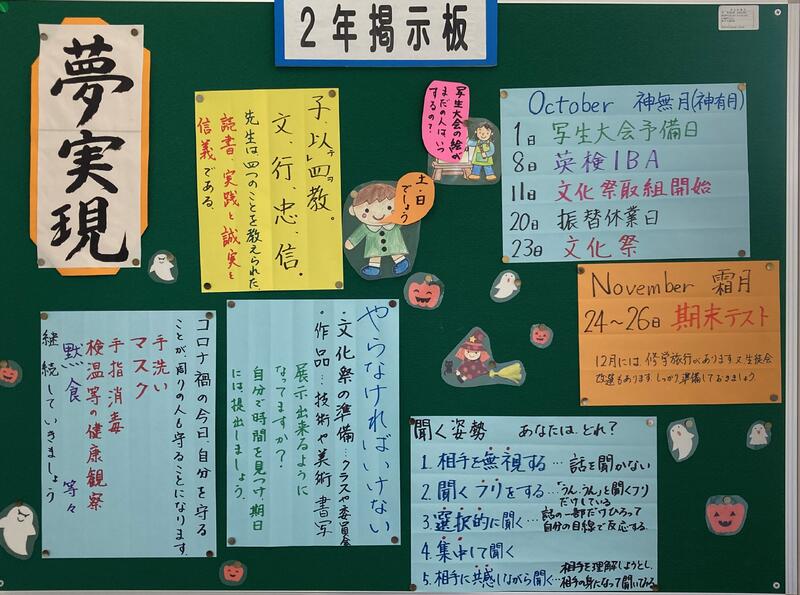 2年掲示板
夢実現
子、以四教。
文、行、忠、信。
先生は四つのことを教えられた。
読書、実践と誠実と
信義である。
写生大会の絵が
まだの人はいつ
するの?
土・日
でしょう
October 神無月(神有月)
1日 写生大会予備日
8日 英検IBA
11日 文化祭取組開始
20日 振替休業日
23日 文化祭
November 霜月
24~26日 期末テスト
12月には、修学旅行があります。又生徒会
改選もあります。しっかり準備しておきましょう。
コロナ禍の今日自分を守る
ことが、周りの人も守ることになります。
手洗い
マスク
手指消毒
検温等の健康観察
黙食 等々
継続していきましょう
やらなければいけない
・文化祭の準備…クラスや委員会
・作品…技術や美術 書写
展示出来るように
なってますか?
自分で時間を見つけ期日
には提出しましょう。
聞く姿勢 あなたは、どれ?
1.相手を無視する…話を聞かない
2.聞くフリをする…「うん、うん」と聞くフリ
だけしている
3.選択的に聞く…話の一部だけひろって
自分の目線で反応する。
4.集中して聞く
5.相手に共感しながら聞く…相手を理解しようとし、
相手の身になって聞いてみる